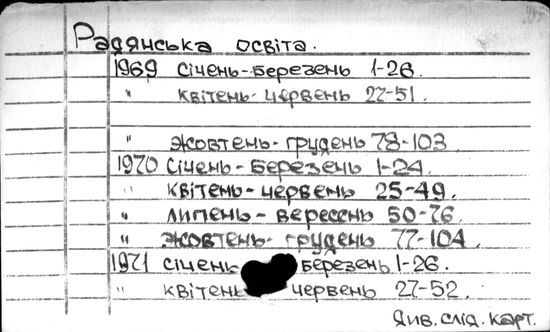 Радянська освіта.
1969 Січень-Березень 1-26.
" квітень-червень 27-51.
" жовтень-грудень 78-103.
1970 Січень-Березень 1-24.
" квітень-червень 25-49.
" липень-вересень 50-76.
" жовтень-грудень 77-104.
1971 січень березень 1-26.
" квітень червень 27-52.
див. слід. карт.